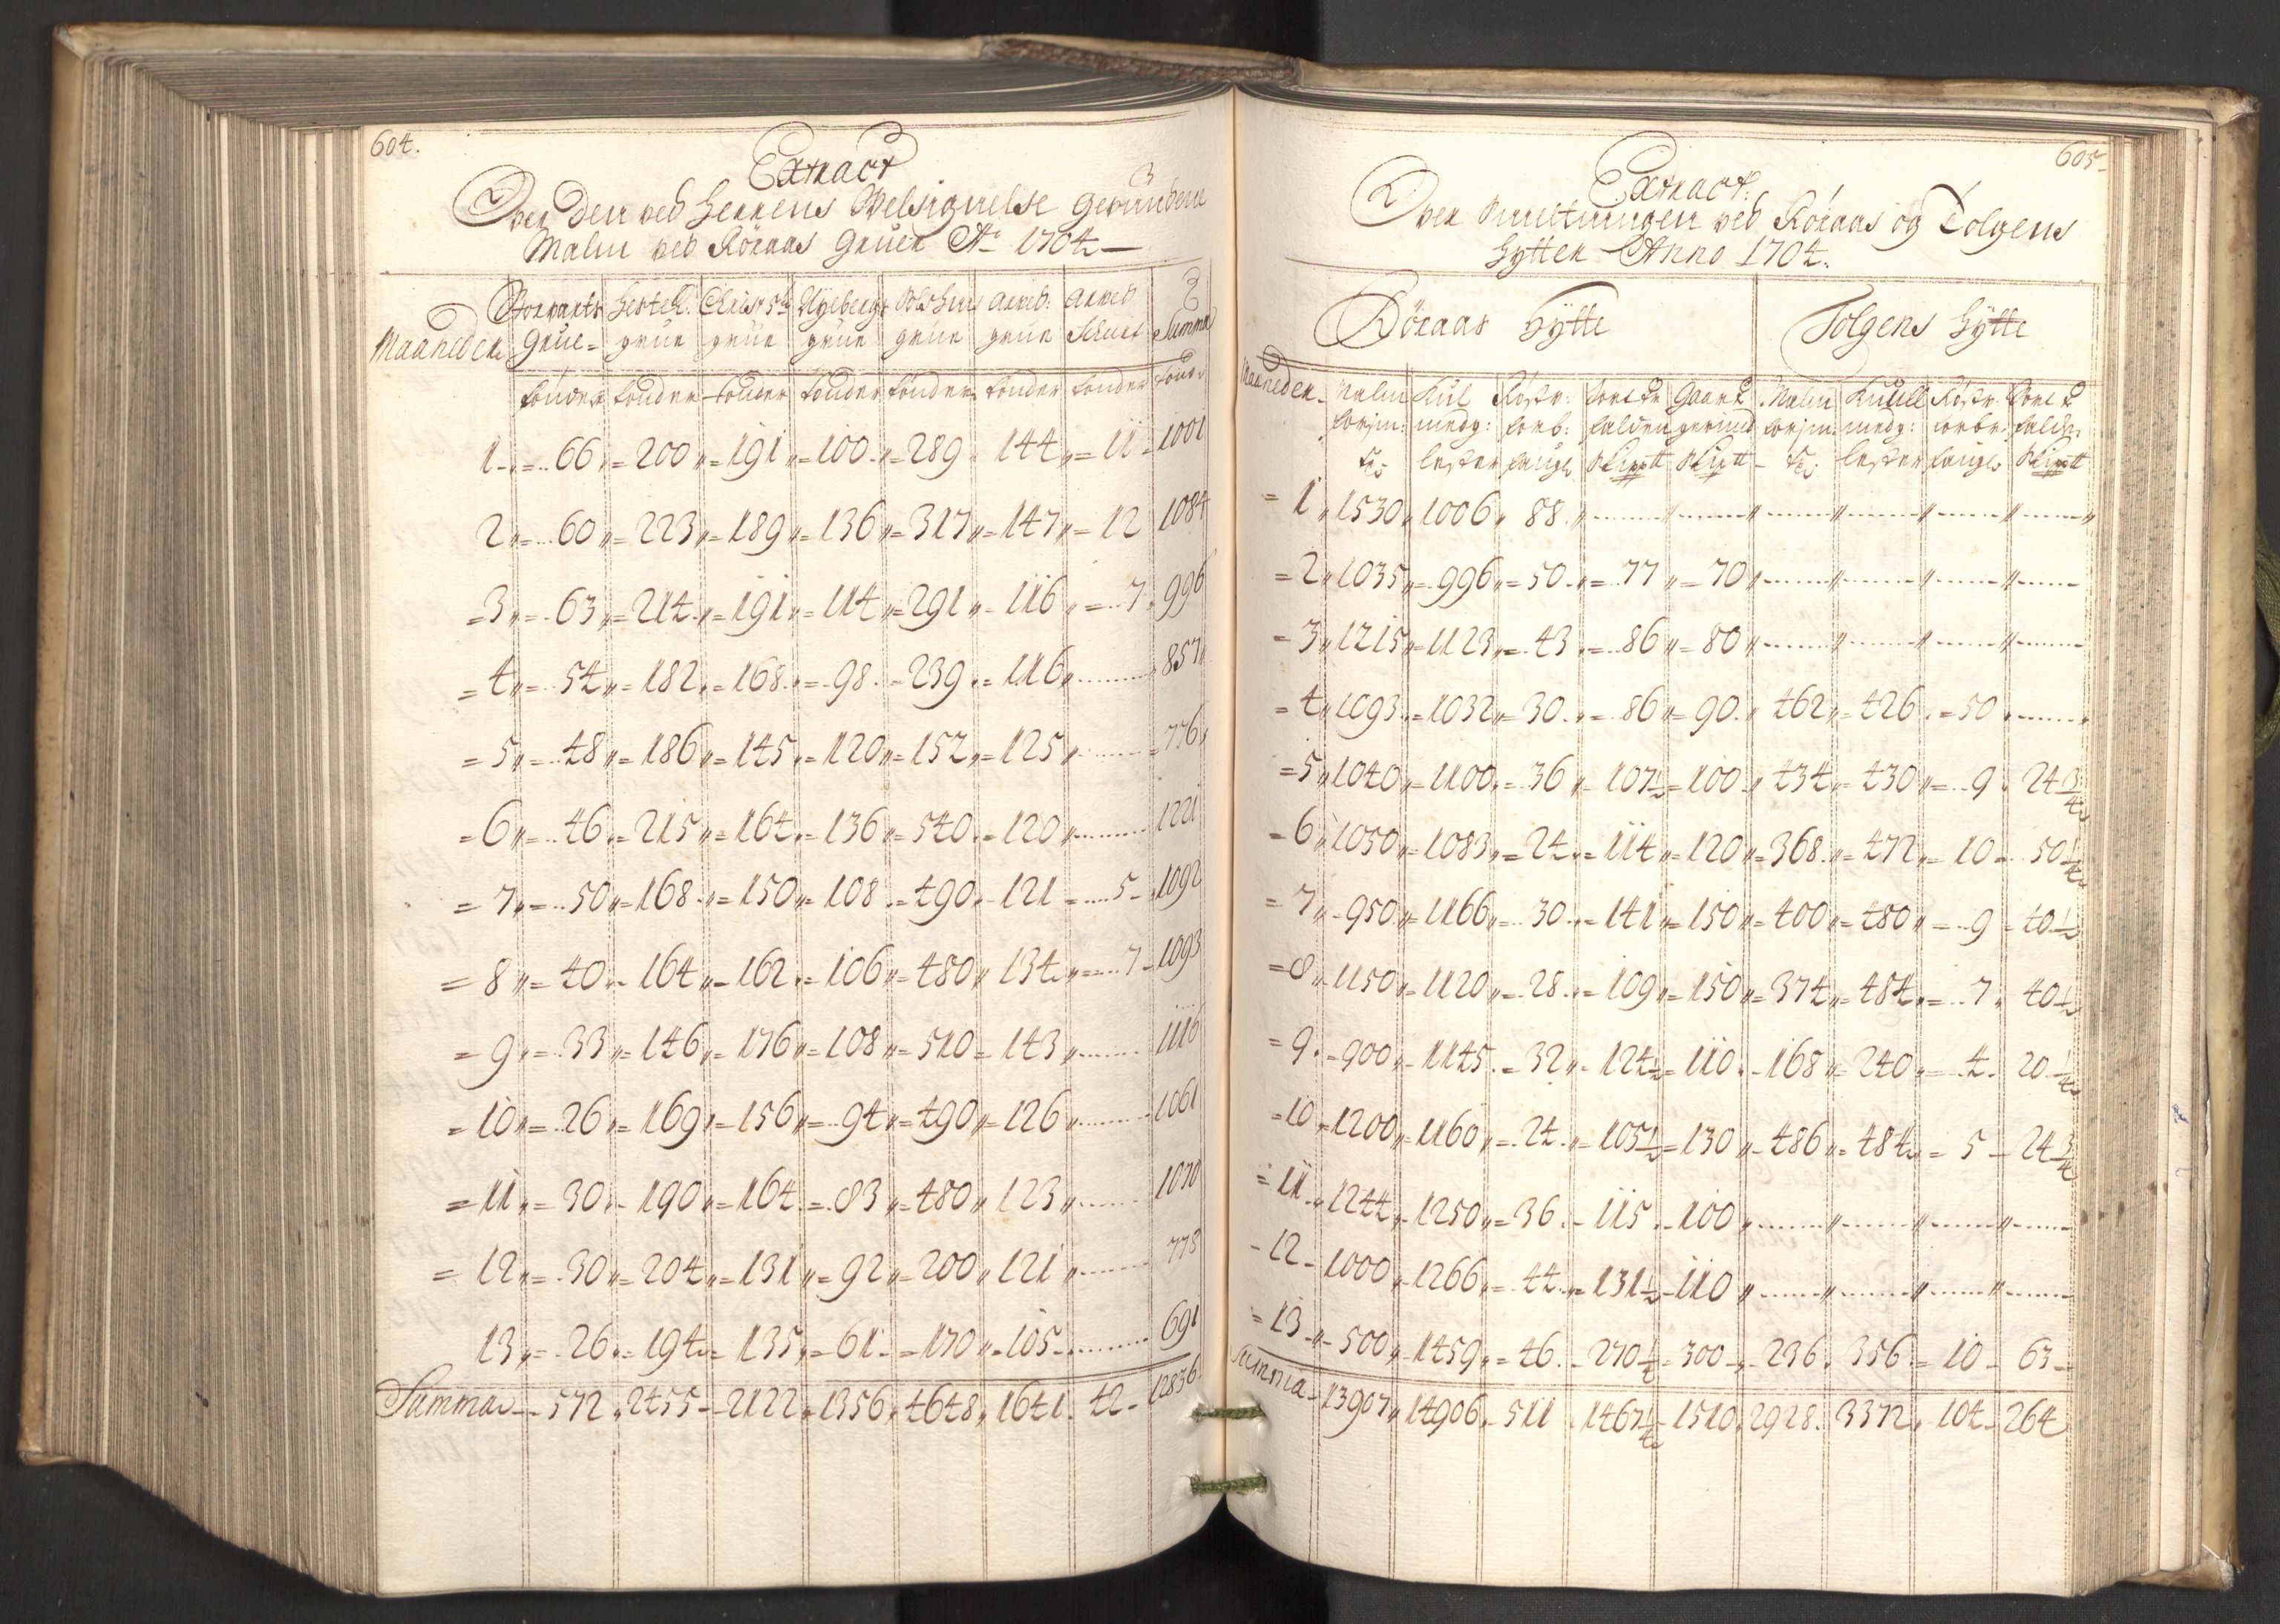 604.
Extract
Over den ved Herrens Velsignelse gevundene
Malm ved Röraas Gruer Ao 1704
Maaneder Storvarts Grue Hestek: grue Christ: 5ti grue Nyebergs grue grue Arved: grue Arved Schurf Summa
tönder tönder tönder tönder tönder tönder tönder tönd:
1 66 200 191 100 289 144 11 1001
2 60 223 189 136 317 147 12 1084
3 63 214 191 114 291 116 7 996
4 54 182 168 98 239 116 857
5 48 186 145 120 152 125 776
6 46 215 164 136 540 120 1221
7 50 168 150 108 490 121 5 1092
8 40 164 162 106 480 134 7 1093
9 33 146 176 108 510 143 1116
10 26 169 156 94 490 126 1061
11 30 190 164 83 480 123 1070
12 30 204 131 92 200 121 778
13 26 194 135 61 170 105 691
Summa 572 2455 2122 1356 4648 1641 42 12836
605
Extract
Over Smeltningen ved Röraas og Tolgens
Hytter Anno 1704.
Röraas Hytte Tolgens Hytte
Maaneder Malm Kul Röstv: Sort Gaark Malm Kull Röstv: Sort
medg: forb: falden gevund medg: forbr: falden
lester lester
1 1530 1006 88
2 1035 996 50 77 70
3 1215 1123 43 86 80
4 1093 1032 30 86 90 462 426 50
5 1040 1100 36 107½ 100 434 430 9 24¾
6 1050 1083 24 114 120 368 472 10 50¼
7 950 1166 30 141 150 400 480 9 40½
8 1150 1120 28 109 150 374 484 7 40½
9 900 1145 32 124½ 110 168 240 4 20¼
10 1200 1160 24 105½ 130 486 484 5 24¾
11 1244 1250 36 115 100
12 1000 1266 44 131½ 110
13 500 1459 46 270¼ 300 236 356 10 63
Summa 13907 14906 511 1467¼ 1510 2928 3372 104 264